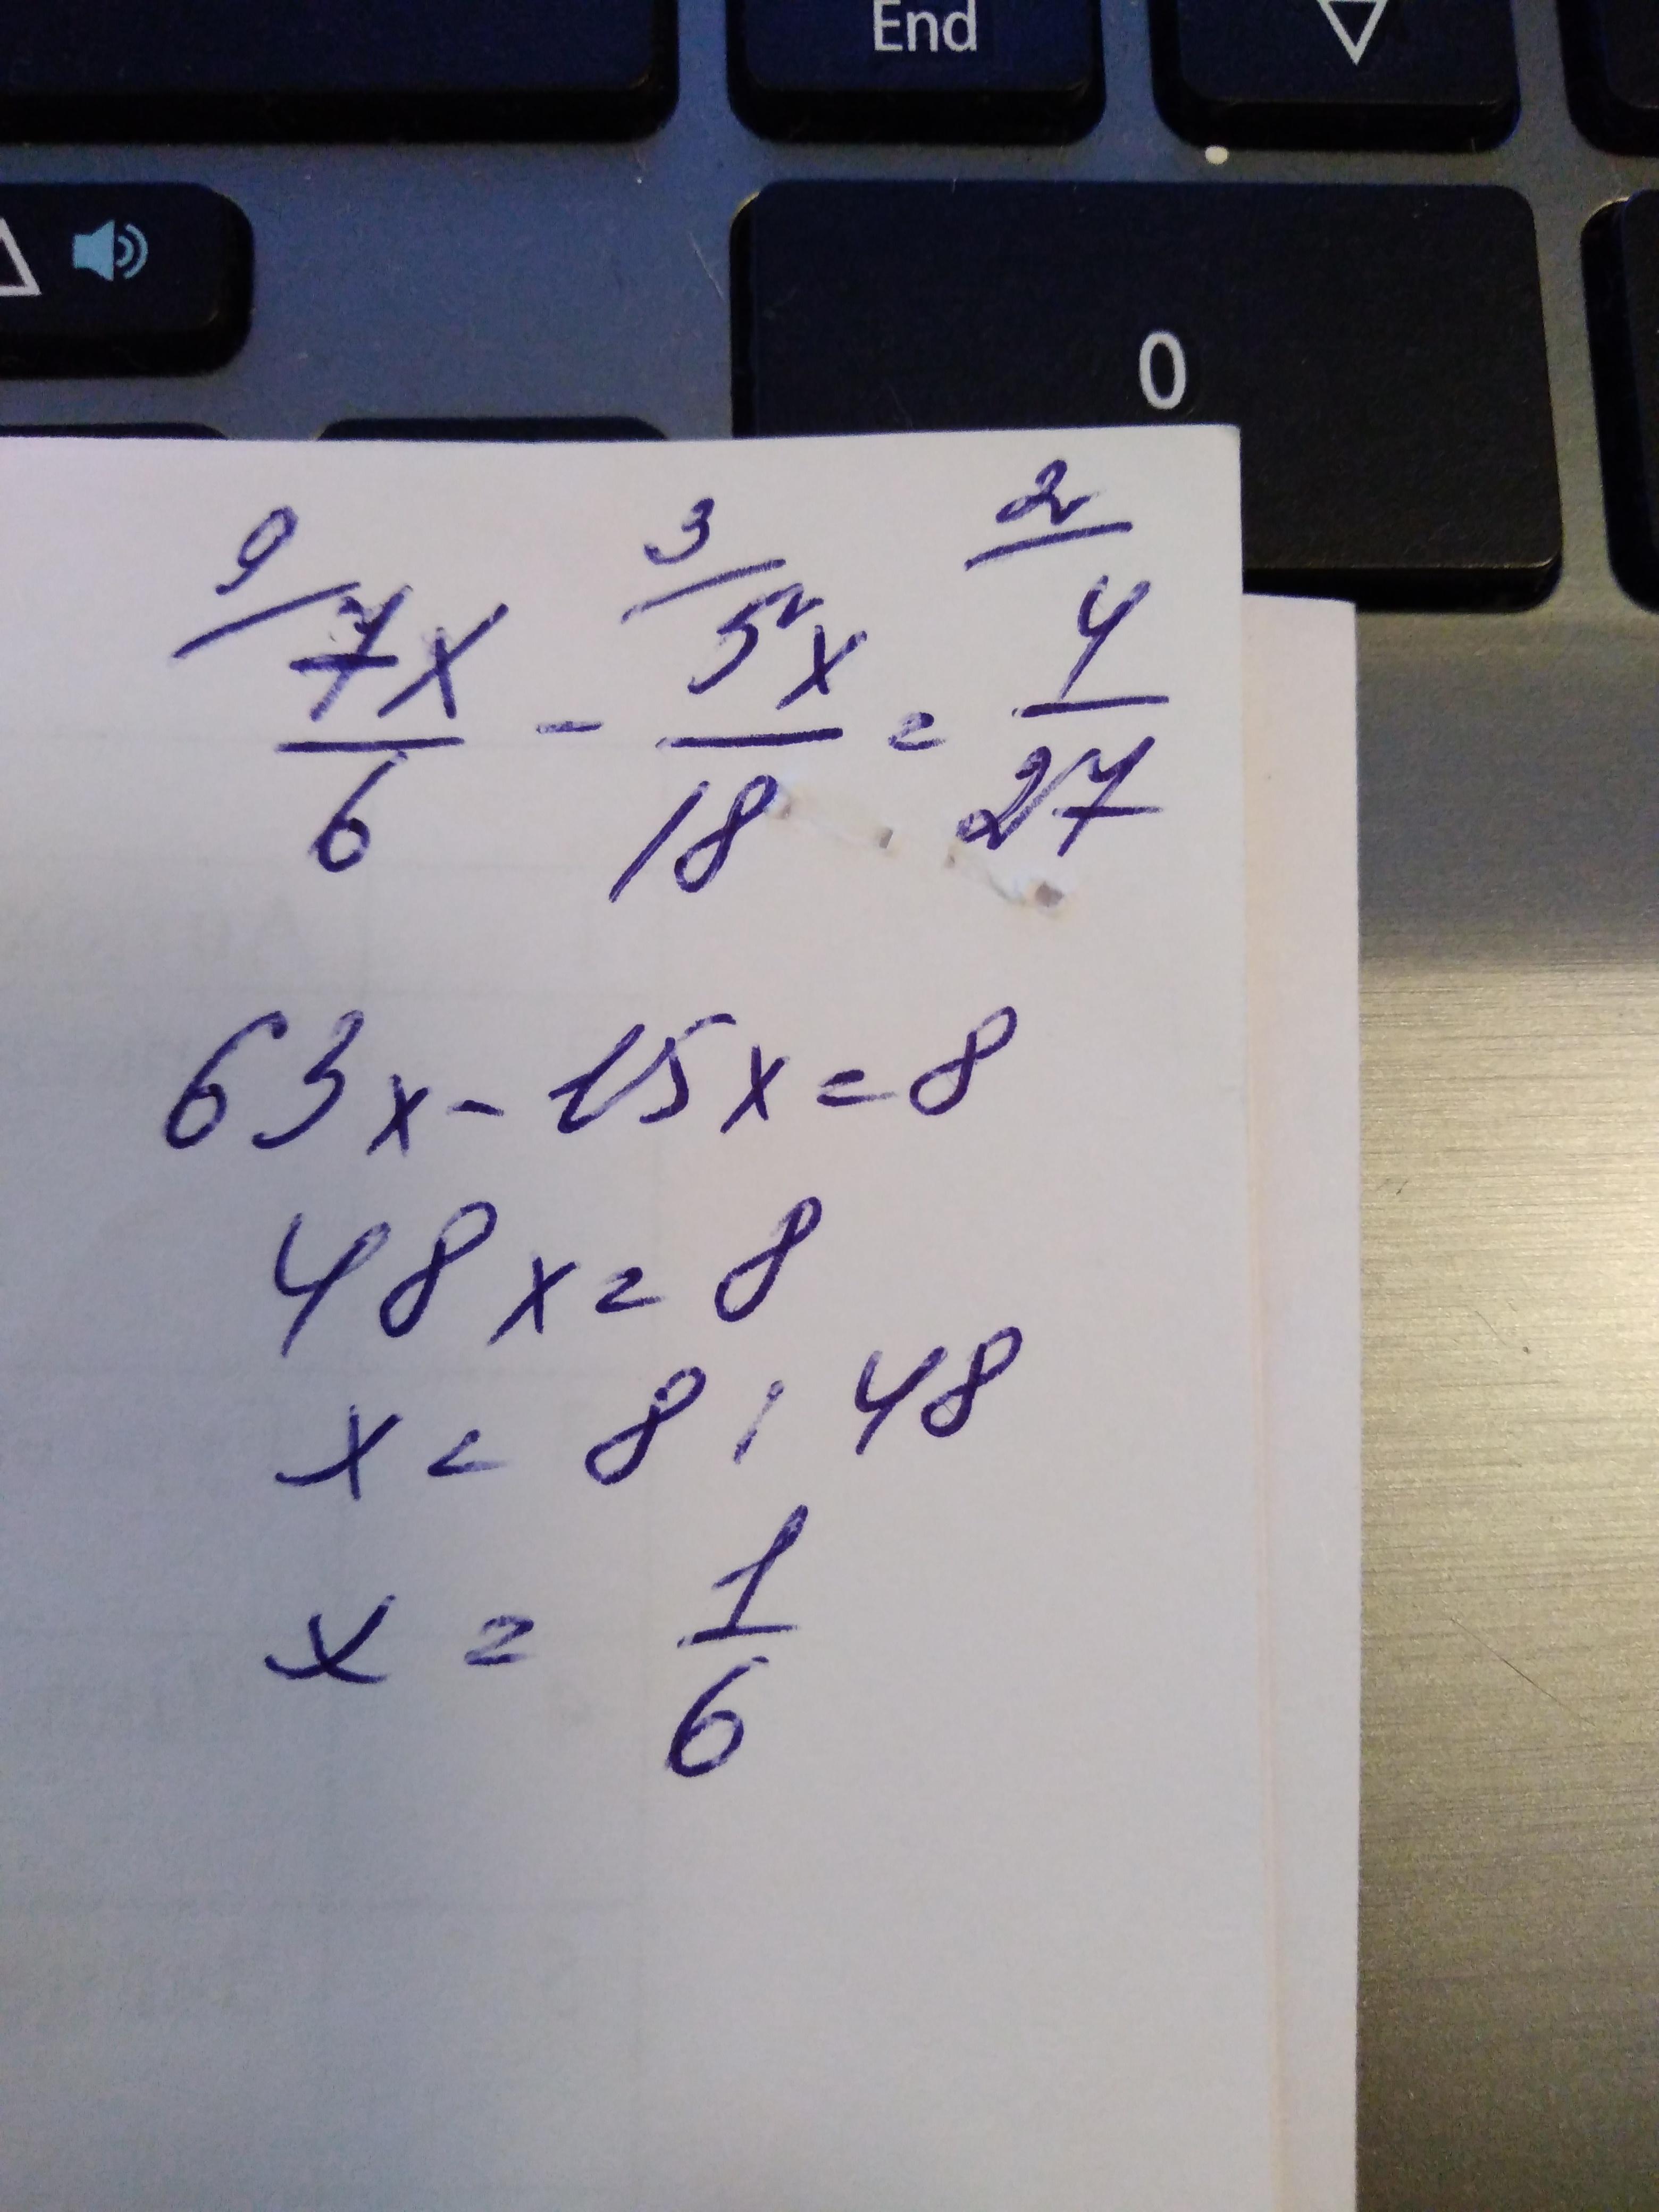 End
0
9/ 3/ 2/
7x/6 - 5x/18 = 4/27
63x - 15x = 8
48x = 8
x = 8 : 48
x = 1/6